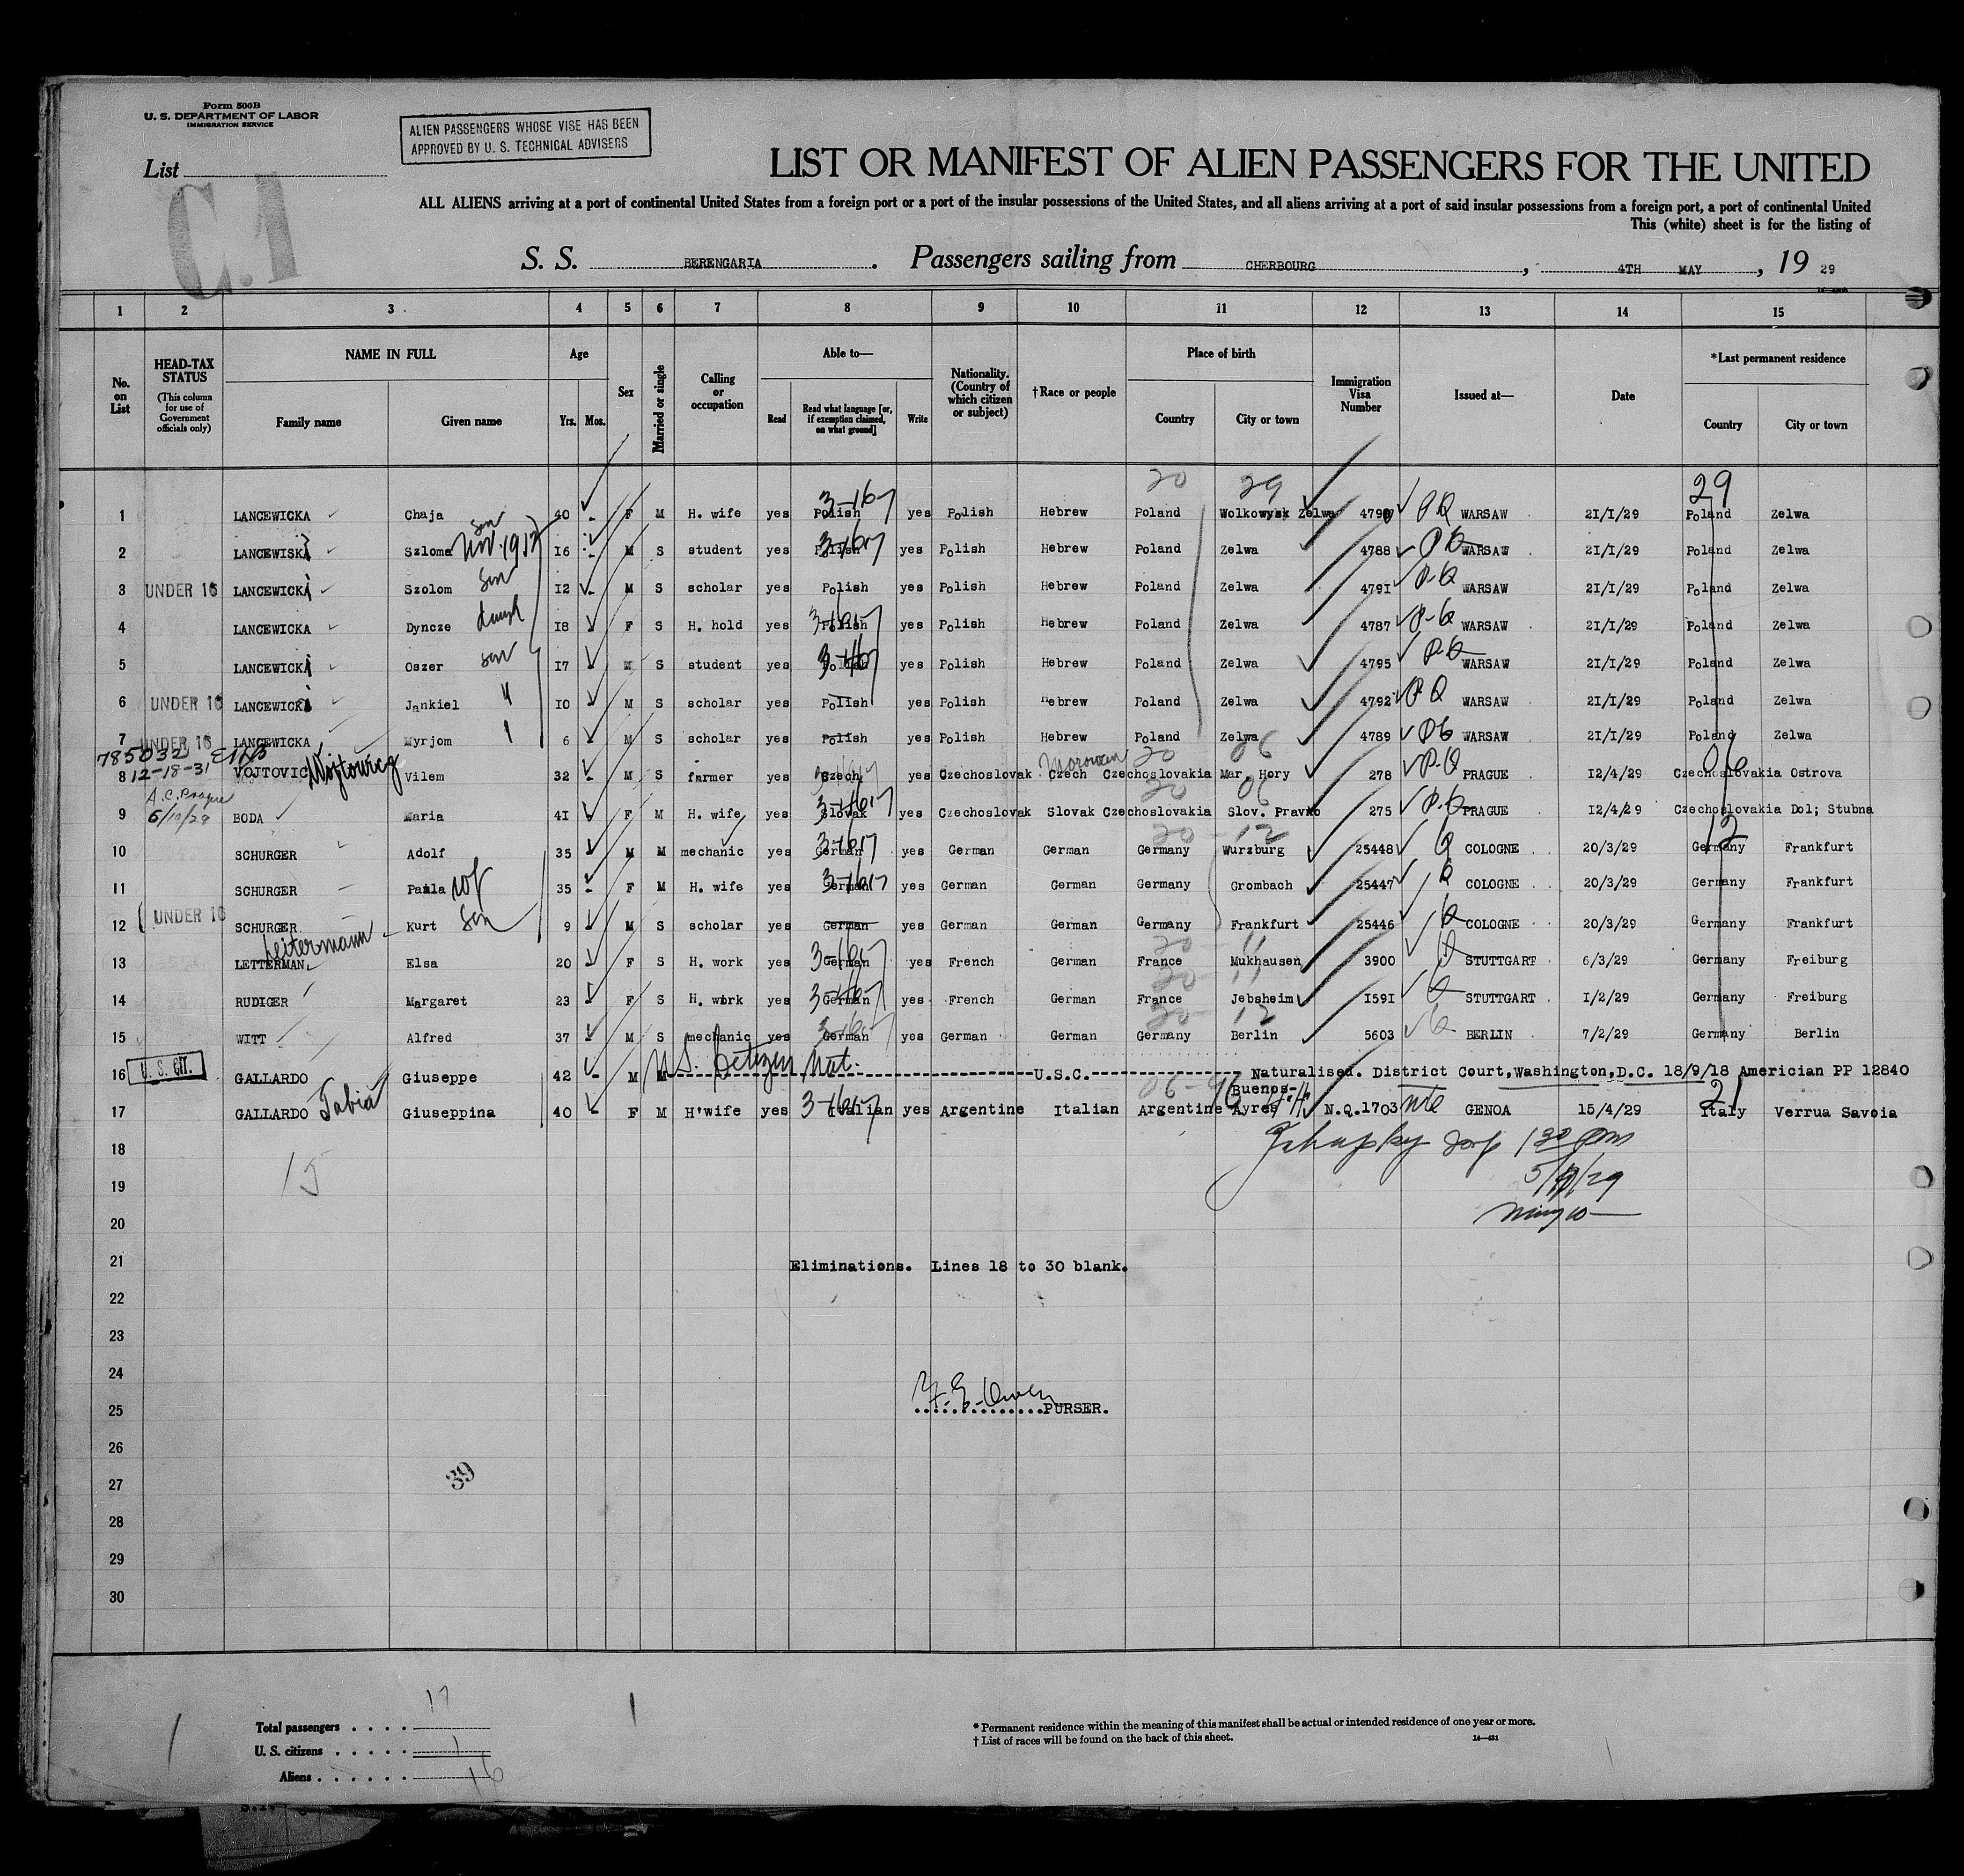 Form 500B
U. S. DEPARTMENT OF LABOR
IMMIGRATION SERVICE
ALIEN PASSENGERS WHOSE VISE HAS BEEN
APPROVED BY U. S. TECHNICAL ADVISERS
List
C.1
LIST OR MANIFEST OF ALIEN PASSENGERS FOR THE UNITED
ALL ALIENS arriving at a port of continental United States from a foreign port or a port of the insular possessions of the United States, and all aliens arriving at a port of said insular possessions from a foreign port, a port of continental United
This (white) sheet is for the listing of
S. S. BERENGARIA. Passengers sailing from CHERBOURG, 4TH MAY, 19 29
1 2 3 4 5 6 7 8 9 10 11 12 13 14 15
No. on List
HEAD-TAX STATUS (This column for use of Government officials only)
NAME IN FULL Family name Given name
Age Yrs. Mos.
Sex
Married or single
Calling or occupation
Able to— Read Read what language [or, if exemption claimed, on what ground] Write
Nationality. (Country of which citizen or subject)
†Race or people
Place of birth Country City or town
Immigration Visa Number
Issued at—
Date
*Last permanent residence Country City or town
20 29 29
1 LANCEWICKA Chaja 40 - F M H. wife yes Polish 3-16-7 yes Polish Hebrew Poland Wolkowysk Zelwa 4790 PQ WARSAW 21/1/29 Poland Zelwa
2 LANCEWISKA Szloma son Nov. 1912 16 - M S student yes Polish yes Polish Hebrew Poland Zelwa 4788 WARSAW 21/1/29 Poland Zelwa
3 UNDER 16 LANCEWICKI Szolom son 12 - M S scholar yes Polish yes Polish Hebrew Poland Zelwa 4791 WARSAW 21/1/29 Poland Zelwa
4 LANCEWICKA Dyncze 18 - F S H. hold yes Polish yes Polish Hebrew Poland Zelwa 4787 WARSAW 21/1/29 Poland Zelwa
5 LANCEWICKI Oszer son 17 - M S student yes Polish yes Polish Hebrew Poland Zelwa 4795 WARSAW 21/1/29 Poland Zelwa
6 UNDER 16 LANCEWICKI Jankiel 10 - M S scholar yes Polish yes Polish Hebrew Poland Zelwa 4792 WARSAW 21/1/29 Poland Zelwa
7 UNDER 16 LANCEWICKA Myrjom 6 - M S scholar yes Polish yes Polish Hebrew Poland Zelwa 4789 WARSAW 21/1/29 Poland Zelwa
785032
12-18-31
8 VOJTOVIC Wojtowicz Vilem 32 - M S farmer yes Szech yes Czechoslovak Czech Moravian Czechoslovakia Mar. Hory 278 PRAGUE 12/4/29 Czechoslovakia Ostrova
6/10/29
9 BODA Maria 41 F M H. wife yes Slovak yes Czechoslovak Slovak Czechoslovakia Slov. Pravno 275 PRAGUE 12/4/29 Czechoslovakia Dol; Stubna
10 SCHURGER Adolf 35 - M M mechanic yes German yes German German Germany Wurzburg 25448 COLOGNE 20/3/29 Germany Frankfurt
11 SCHURGER Paula wf 35 - F M H. wife yes German yes German German Germany Grombach 25447 COLOGNE 20/3/29 Germany Frankfurt
12 UNDER 16 SCHURGER Kurt son 9 - M S scholar yes German yes German German Germany Frankfurt 25446 COLOGNE 20/3/29 Germany Frankfurt
Leitermann
13 LETTERMAN Elsa 20 - F S H. work yes German yes French German France Mukhausen 3900 STUTTGART 6/3/29 Germany Freiburg
14 RUDIGER Margaret 23 - F S H. work yes German yes French German France Jebsheim 1591 STUTTGART 1/2/29 Germany Freiburg
15 WITT Alfred 37 - M S mechanic yes German yes German German Germany Berlin 5603 BERLIN 7/2/29 Germany Berlin
U. S. CIT.
16 GALLARDO Giuseppe 42 - M M U.S. Citizen Nat. U.S.C. Naturalised. District Court,Washington,D.C. 18/9/18 Americian PP 12840
17 GALLARDO Fabia Giuseppina 40 - F M H'wife yes Italian yes Argentine Italian Argentine Buenos-Ayres N.Q.1703 GENOA 15/4/29 Italy Verrua Savoia
18
19 15
20
21 Eliminations. Lines 18 to 30 blank.
22
23
24
25 PURSER.
26
27 39
28
29
30
Total passengers . . . . 17
U. S. citizens . . . . . 1
Aliens . . . . . . 16
* Permanent residence within the meaning of this manifest shall be actual or intended residence of one year or more.
† List of races will be found on the back of this sheet.
14—431